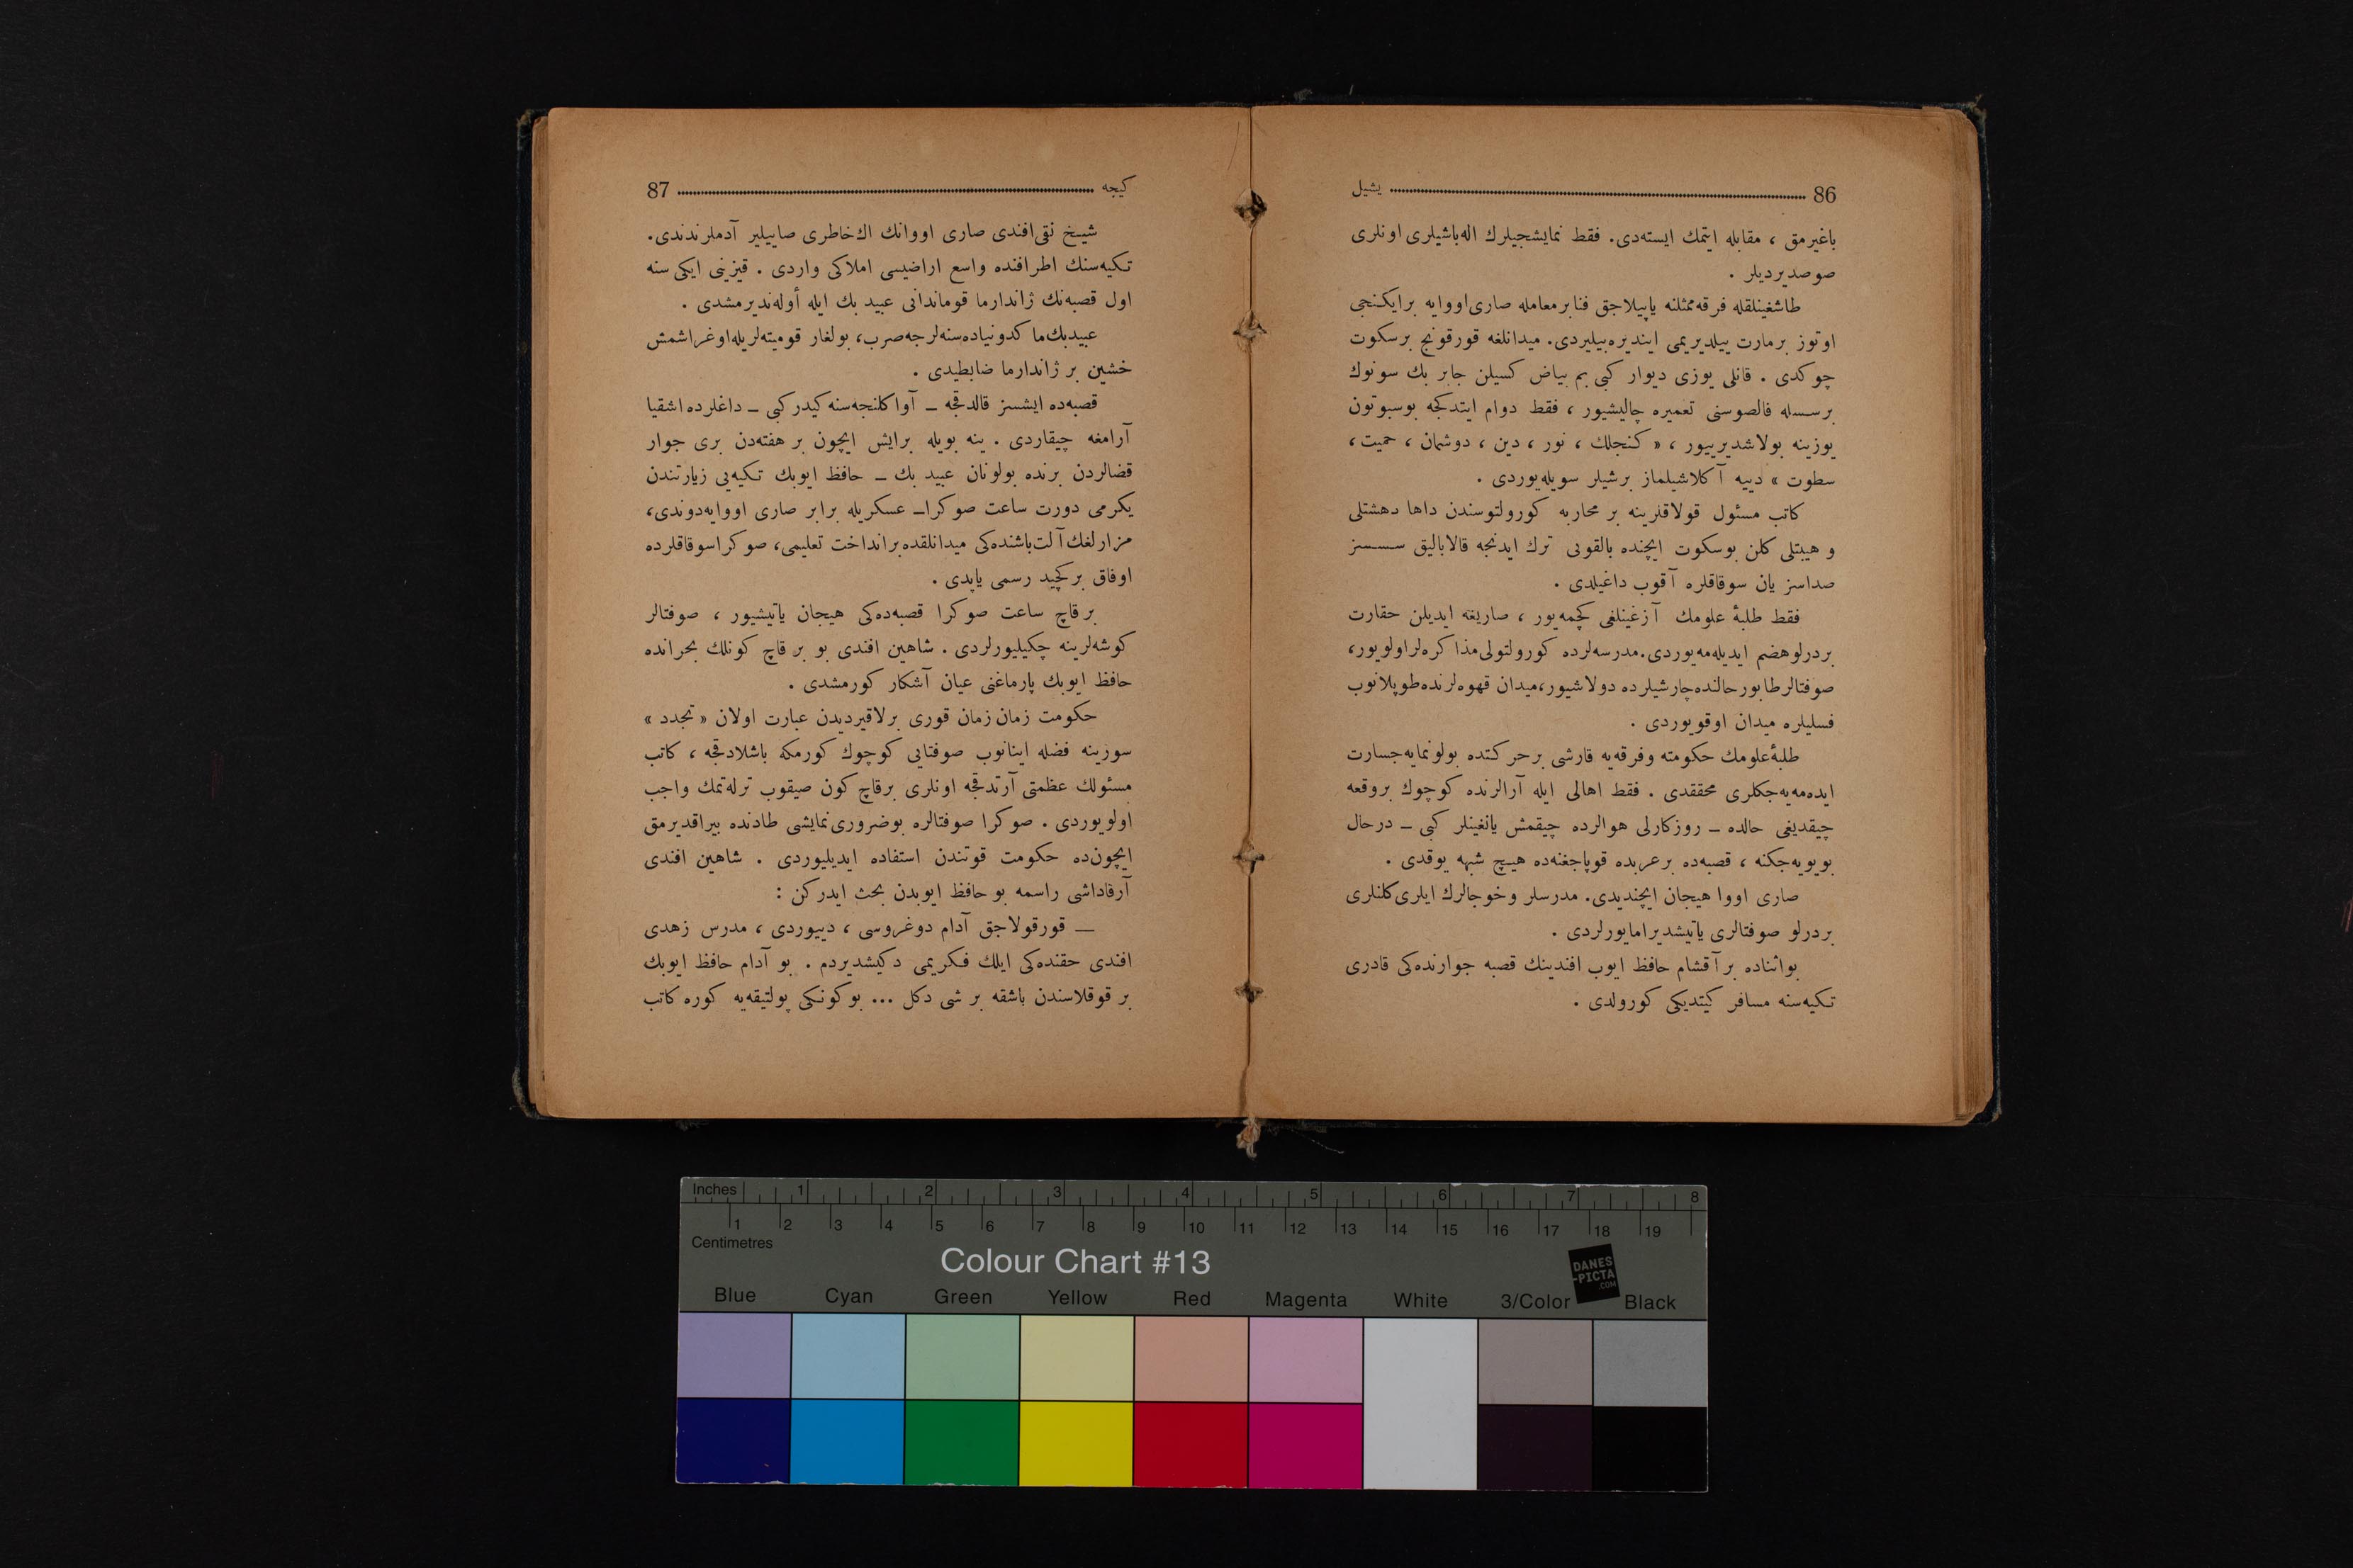 86 یشیل
باغیرمق ، مقابله ایتمك ایسته‌دی. فقط نمایشجیلرك اله‌باشیلری اونلری
صوصدیردیلر .
طاشغینلقله فرقه‌ممثلنه یاپیلاجق فنا بر معامله صاری‌اووایه برایكنجی
اوتوز برمارت ییلدیریمی ایندیره‌بیلیردی. میدانلغه قورقونج برسكوت
چوكدی . قانلی یوزی دیوار كبی بم بیاض كسیلن جابر بك سونوك
برسسله فالصوسنی تعمیره چالیشیور ، فقط دوام ایتدكجه بوسبوتون
یوزینه بولاشدیرییور ، « كنجلك ، نور ، دین ، دوشمان ، حمیت ،
سطوت » دییه آكلاشیلماز برشیلر سویله‌یوردی .
كاتب مسئول قولاقلرینه بر محاربه كورولتوسندن داها دهشتلی
و هیبتلی كلن بوسكوت ایچنده بالقونی ترك ایدنجه قالابالیق سسسز
صداسز یان سوقاقلره آقوب داغیلدی .
فقط طلبۀ علومك آزغینلغی كچمه‌یور ، صاریغه ایدیلن حقارت
بردرلو هضم ایدیله‌مه‌یوردی. مدرسه‌لرده كورولتولی‌مذاكره‌لر اولویور،
صوفتالر طابور حالنده چارشیلرده دولاشیور، میدان قهوه‌لرنده طوپلانوب
فسلیلره میدان اوقویوردی .
طلبۀ علومك حكومته وفرقه‌یه قارشی برحركتده بولونمایه جسارت
ایده‌مه‌یه‌جكلری محققدی . فقط اهالی ایله آرالرنده كوچوك بروقعه
چیقدیغی حالده ــ روزكارلی هوالرده چیقمش یانغینلر كبی ــ درحال
بویویه‌جكنه ، قصبه‌ده برعربده قوپاجغنه‌ده هیچ شبهه یوقدی .
صاری اووا هیجان ایچندیدی. مدرسلر وخوجالرك ایلری‌كلنلری
بردرلو صوفتالری یاتیشدیرامایورلردی .
بواثناده بر آقشام حافظ ایوب افندینك قصبه جوارنده‌كی قادری
تكیه‌سنه مسافر كیتدیكی كورولدی .
كیجه 87
شیخ نقی‌افندی صاری اووانك اك‌خاطری صاییلیر آدملرندندی.
تكیه‌سنك اطرافنده واسع اراضیسی املاكی واردی . قیزینی ایكی سنه
اول قصبه‌نك ژاندارما قوماندانی عبید بك ایله أوله‌ندیرمشدی .
عبیدبك‌ماكدونیاده‌سنه‌لرجه‌صرب، بولغار قومیته‌لریله‌اوغراشمش
خشین بر ژاندارما ضابطیدی .
قصبه‌ده ایشسز قالدقجه ــ آوا كلنجه‌سنه كیدر كبی ــ داغلرده اشقیا
آرامغه چیقاردی . ینه بویله برایش ایچون بر هفته‌دن بری جوار
قضالردن برنده بولونان عبید بك ــ حافظ ایوبك تكیه‌یی زیارتندن
یكرمی دورت ساعت صوكراــ عسكریله برابر صاری اووایه‌دوندی،
مزارلغك‌آلت‌باشنده‌كی میدانلقده برانداخت تعلیمی، صوكراسوقاقلرده
اوفاق بر كچید رسمی یاپدی .
بر قاچ ساعت صوكرا قصبه‌ده‌كی هیجان یاتیشیور ، صوفتالر
كوشه‌لرینه چكیلیورلردی . شاهین افندی بو بر قاچ كونلك بحرانده
حافظ ایوبك پارماغنی عیان آشكار كورمشدی .
حكومت زمان زمان قوری برلاقیردیدن عبارت اولان « تجدد »
سوزینه فضله اینانوب صوفتایی كوچوك كورمكه باشلادقجه ، كاتب
مسئولك عظمتی آرتدقجه اونلری برقاچ كون صیقوب ترله‌تمك واجب
اولویوردی . صوكرا صوفتالره بوضروری نمایشی طادنده بیراقدیرمق
ایچون‌ده حكومت قوتندن استفاده ایدیلیوردی . شاهین افندی
آرقاداشی راسمه بو حافظ ایوبدن بحث ایدركن :
ــ قورقولاجق آدام دوغروسی ، دییوردی ، مدرس زهدی
افندی حقنده‌كی ایلك فكریمی دكیشدیردم . بو آدام حافظ ایوبك
بر قوقلاسندن باشقه بر شی دكل ... بو كونكی پولتیقه‌یه كوره كاتب
Inches 1 2 3 4 5 6 7 8
1 2 3 4 5 6 7 8 9 10 11 12 13 14 15 16 17 18 19
Centimetres
Colour Chart #13
DANES
-PICTA
.COM
Blue Cyan Green Yellow Red Magenta White 3/Color Black